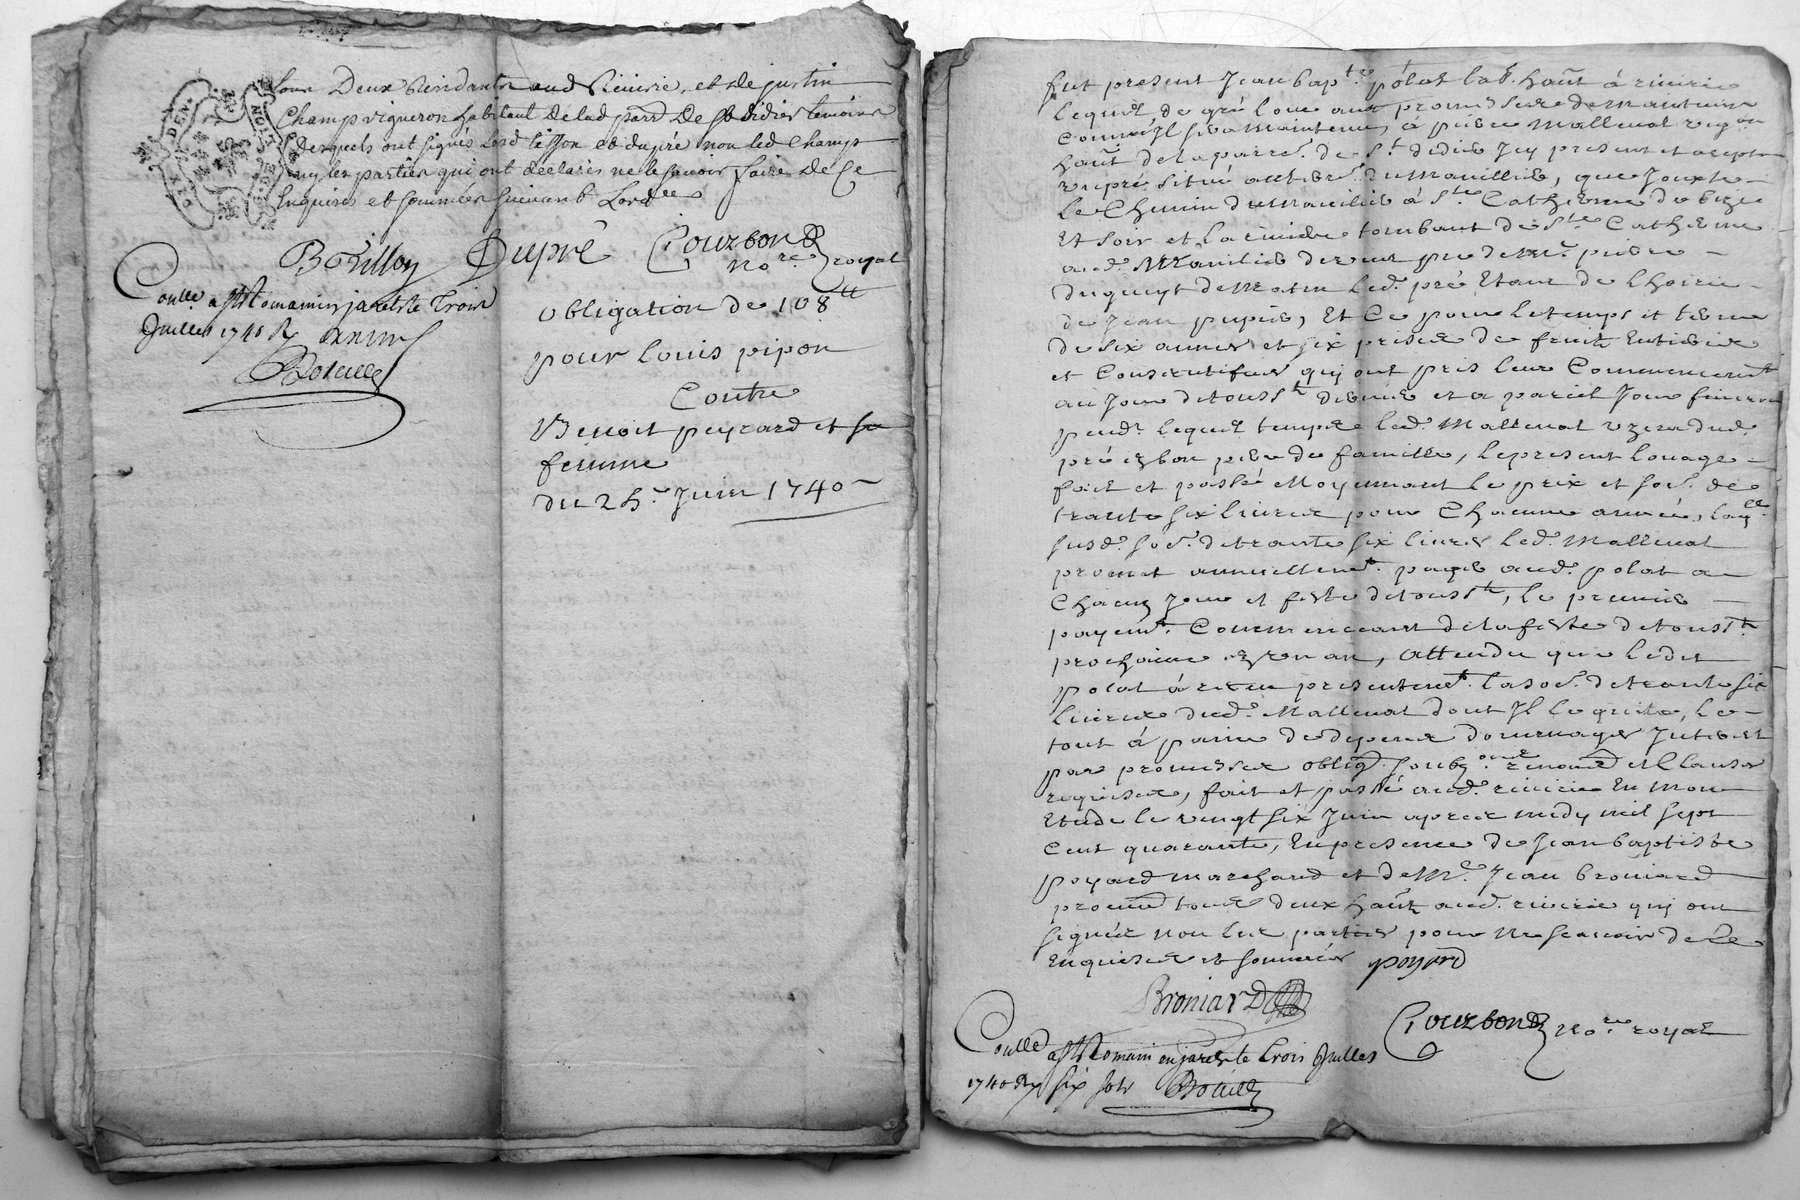 tous Deux Residants aud Riuirie, et de justin
Champ vigneron habitant delad parr De St didier temoins
Desquels ont signés Led et dupré non led Champ
ny les parties qui ont declarés ne le scauoir faire De Ce
Enquises et sommées suiuant Lord.ce
DEN LION
Dupré
Courbon
No.re royal
Coulle a St Romain en jarets le Trois
Juillet 1740 R
obligation de 108 tt
pour louis pipon
Contre
Benoit peyrard et sa
femme
du 25.e Juin 1740
fut present Jean bap.te polat lab.r hañt à riuirie
lequel de gré loue auec promesse de maintenir
à pierre Malleual vigon
hañt de la parre.e de S.t didier Jcy present et acept.
vn pré situé au que Jouxte
le Chemin du à S.te Catherine de bize
et soir et la riuiere tombant de S.te Catherine
aud.
de matin led. pré Etant de
de Jean pupier, Et Ce pour le temps et terme
de six années et six prises de fruits Entieres
et Consecutiues qui ont pris leur Commencem.t
au Jour de touss.ts dernier et a pareil Jour finiront
pend.t lequel temps led. Mallenal vzera dud.
pré en bon pere de famille, le present louage
fait et passé Moyennant le prix et so.e de
trante six liures pour Chacune année, laq.lle
susd. so.e de trante six liures led. Mallenal
promet annuellem.t payer aud. polat a
Chacun Jour et feste de touss.ts, le premier
payem.t Commenceant de la feste de touss.ts
prochaine en vn an, attendu que ledit
polat à receu presentem.t la so.e de trante six
liures dud. Mallenal dont Jl le quite, le
tout à paine de depens domages Jnterest
par promesses oblig. renon.ons et Clauses
requises, fait et passé aud. riuirie En mon
Etude le vingt six Juin apres midy mil sept
Cent quarante, En presence de Jean baptiste
poyard marchand et de M.e Jean broniard
tous deux hañts aud. riuirie qui ont
signés non les parties pour ne scauoir de Ce
Enquises et sommées
poyard
Broniard
Courbon No.re royal
Coulle a St Romain en jarets le Trois Juillet
1740 R six sols